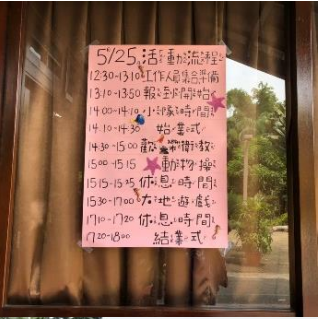 5/25 活動流程
12:30-13:10 工作人員集合準備
13:10-13:50 報到開始
14:00-14:10 小隊時間
14:10-14:30 始業式
14:30-15:00
15:00-15:15 動物操
15:15-15:25 休息時間
15:30-17:00 大地遊戲
17:10-17:20 休息時間
17:20-18:00 結業式